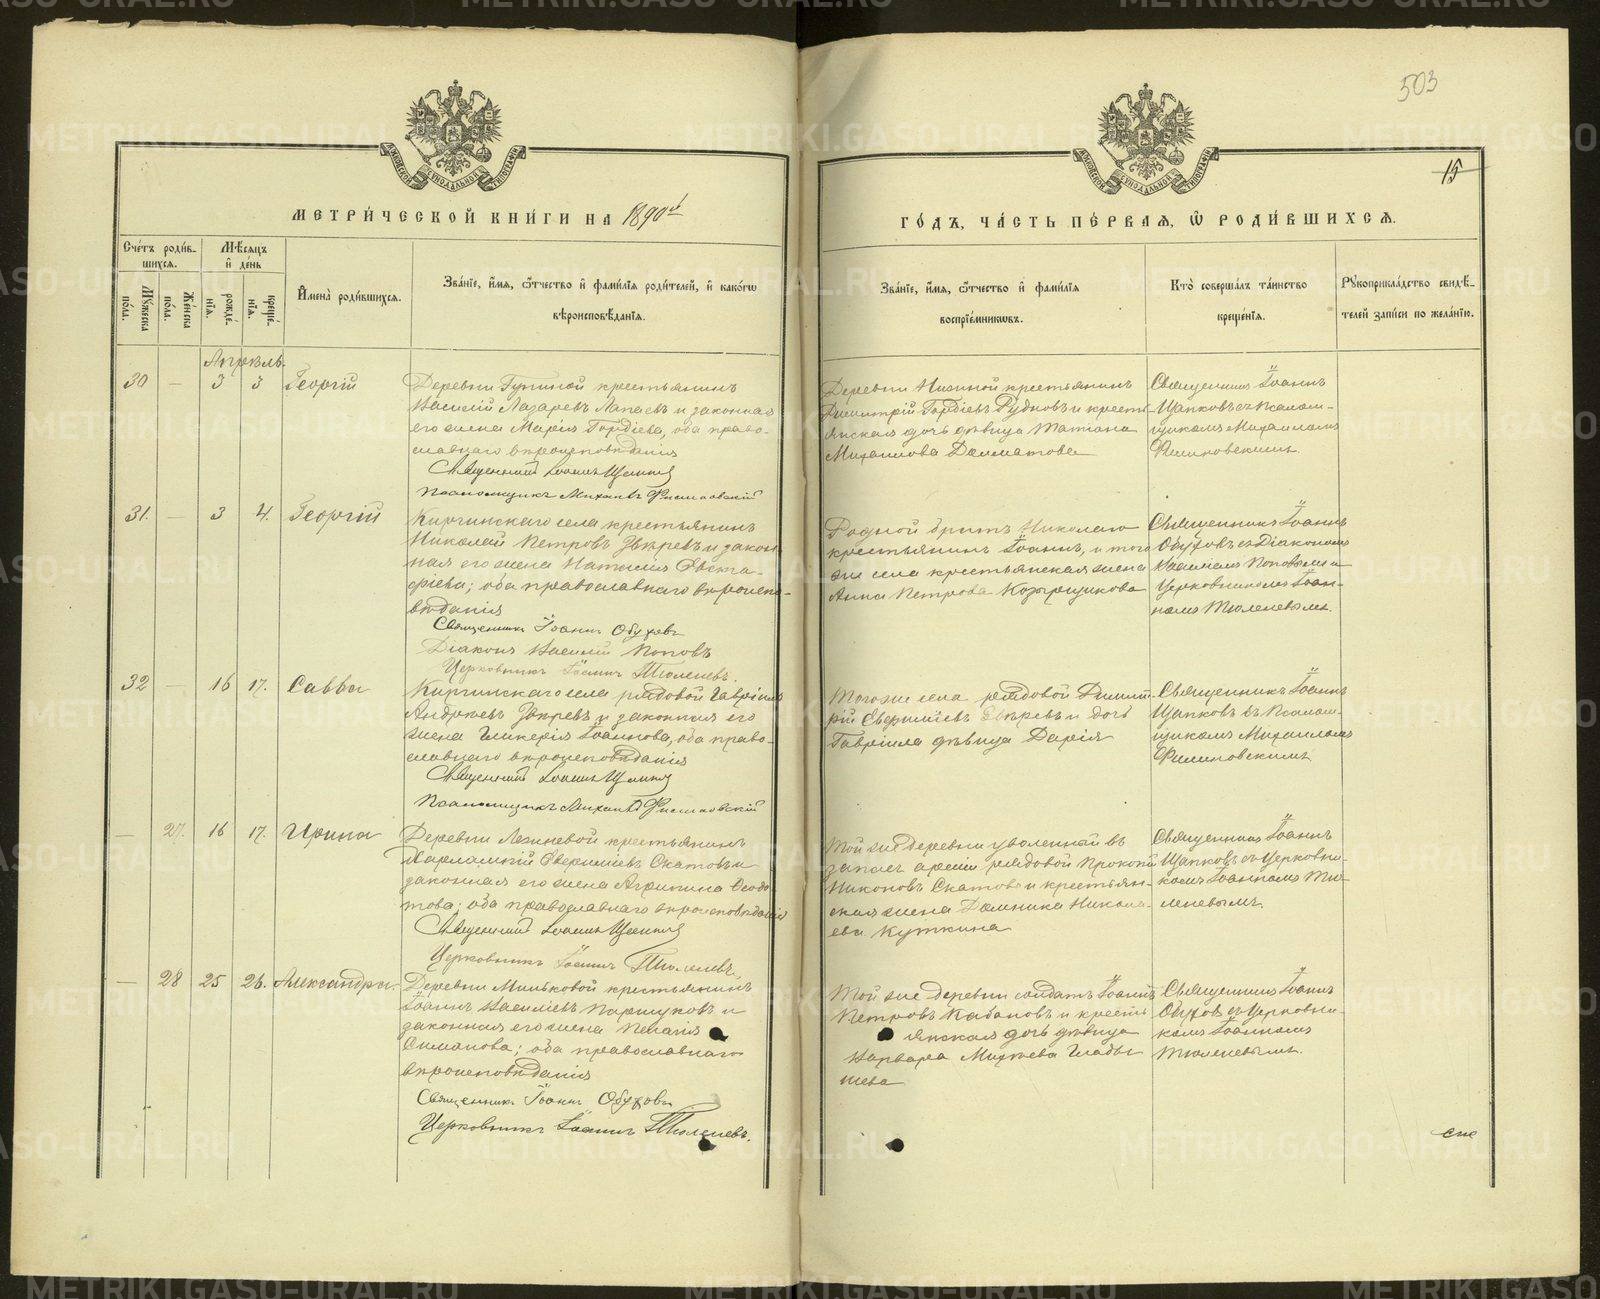 503
15
МЕТРИ́ЧЕСКОЙ КНИ́ГИ НА 1890й
ГО́ДЪ, ЧА́СТЬ ПЕ́РВАЯ, Ѡ РОДИ́ВШИХСЯ.
Сче́тъ роди́вшихся.
Му́жеска по́ла.
Же́нска по́ла.
Мѣ́сяцъ и де́нь
рожде́нїя.
креще́нїя.
И҆мена̀ роди́вшихся.
Зва́нїе, и҆́мя, ѻ҆́тчество и҆ фами́лїя роди́телей, и҆ како́гѡ
вѣроисповѣ́данїя.
Зва́нїе, и҆́мя, ѻ҆́тчество и҆ фами́лїя
воспрїе́мникѡвъ.
Кто̀ соверша́лъ та́инство
креще́нїя.
Рꙋкоприкла́дство свидѣ́телей за́писи по жела́нїю.
Апрѣль.
30 — 3 3 Георгій
Деревни Гуниной крестьянинъ
Василій Лазаревъ Лапаевъ и законная
его жена Марія Гордіева, оба право-
славнаго вѣроисповѣданія
Священникъ Іоаннъ Щапковъ
Псаломщикъ Михаилъ Филиповскій
Деревни крестьянинъ
Димитрій Гордіевъ Рудновъ и кресть-
янская дочь дѣвица Татіана
Михаилова Далматова
Священникъ Іоаннъ
Щапковъ съ Псалом-
щикомъ Михаиломъ
Филиповскимъ.
31. — 3 4. Георгій
Киргинскаго села крестьянинъ
Николай Петровъ Звѣревъ и закон-
ная его жена Наталія Евста-
фіева; оба православнаго вѣроиспо-
вѣданія
Священникъ Іоаннъ Обуховъ
Діаконъ Василій Поповъ
Церковникъ Іоаннъ Тюленевъ.
Родной братъ Николаю
крестьянинъ Іоаннъ, и того
же села крестьянская жена
Анна Петрова Козырщикова
Священникъ Іоаннъ
Обуховъ съ Діакономъ
Василіемъ Поповымъ и
Церковникомъ Іоан-
номъ Тюленевымъ.
32 — 16 17. Савва
Киргинскаго села рядовой Гавріилъ
Андреевъ Звѣревъ и законная его
жена Гликерія Іоаннова, оба право-
славнаго вѣроисповѣданія
Священникъ Іоаннъ Щапковъ
Псаломщикъ Михаилъ Филиповскій
Тогоже села рядовой Димит-
рій Звѣревъ и дочь
Гавріила дѣвица Дарія
Священникъ Іоаннъ
Щапковъ съ Псалом-
щикомъ Михаиломъ
Филиповскимъ
— 27. 16 17. Ирина
Деревни крестьянинъ
Харлампій Скатовъ и
законная его жена Агрипина Ѳеодо-
това; оба православнаго вѣроисповѣданія
Священникъ Іоаннъ Щапковъ
Церковникъ Іоаннъ Тюленевъ.
Той же деревни уволенный въ
запасъ арміи рядовой Прокопій
Никоновъ Скатовъ и крестьян-
ская жена Домника Никола-
ева Куткина
Священникъ Іоаннъ
Щапковъ съ Церковни-
комъ Іоанномъ Тю-
леневымъ.
— 28 25 26. Александра.
Деревни Мильковой крестьянинъ
Іоаннъ Василіевъ Паршуковъ и
законная его жена Пелагія
Симанова; оба православнаго
вѣроисповѣданія
Священникъ Іоаннъ Обуховъ
Церковникъ Іоаннъ Тюленевъ.
Той же деревни солдатъ Іоаннъ
Петровъ Кабановъ и кресть-
янская дочь дѣвица
Варвара
шева
Священникъ Іоаннъ
Обуховъ съ Церковни-
комъ Іоанномъ
Тюленевымъ.